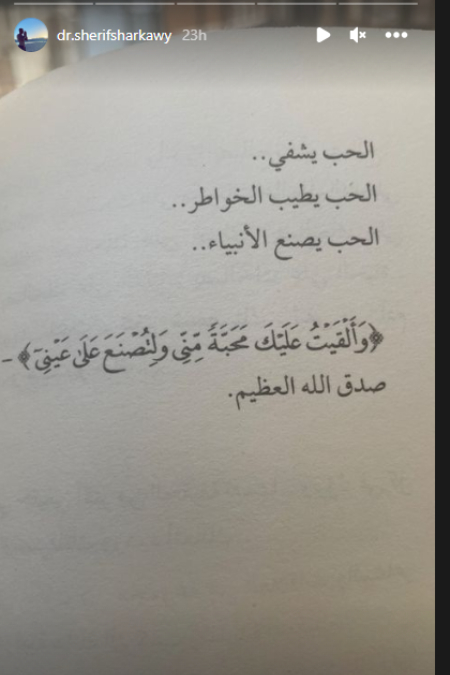 dr.sherifsharkawy 23h
الحب يشفي..
الحب يطيب الخواطر..
الحب يصنع الأنبياء..
﴿وَأَلْقَيْتُ عَلَيْكَ مَحَبَّةً مِّنِّى وَلِتُصْنَعَ عَلَىٰ عَيْنِىٓ﴾ -
صدق الله العظيم.